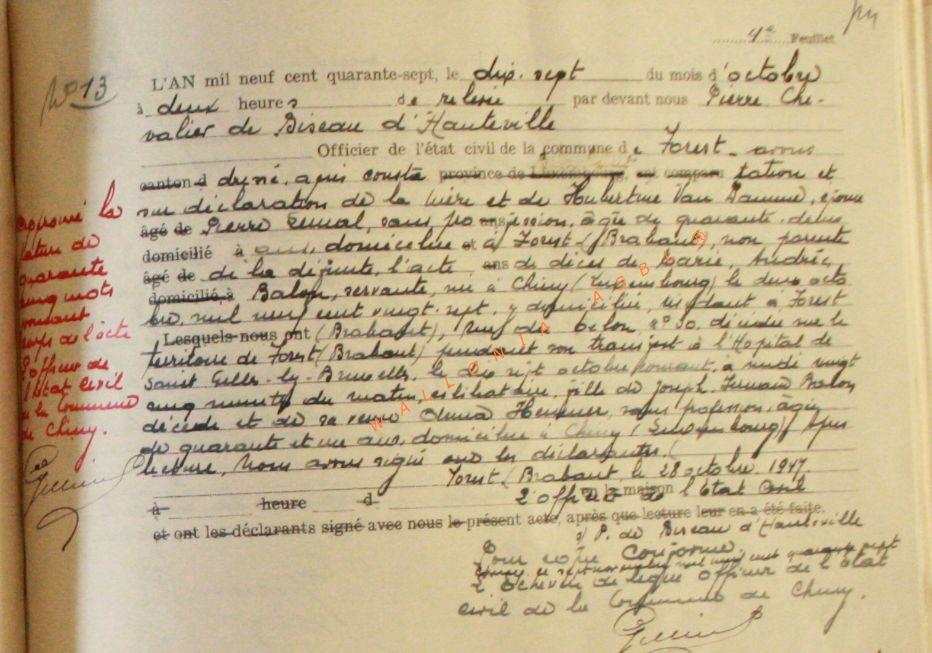 4e Feuillet
No 13
L'AN mil neuf cent quarante-sept, le dix-sept du mois d'octobre
à deux heures de relevée par devant nous Pierre Che-
valier de Biseau d'Hauteville
Officier de l'état civil de la commune de Forest avons
canton d dréné, après consta province de Luxembourg, ont comparu tation et
sur déclaration de la mère et de Hubertine Van Damme, épouse
âgé de Pierre ans sans profession, âgée de quarante-deux
domicilié à ans, domiciliée à Forest (Brabant), non parente
âgé de de la défunte, l'acte ans de décès de Marie, Andrée,
domicilié, à Balon, servante, née à Chiny (Luxembourg) le deux octo
bre, mil neuf cent vingt-sept, y domiciliée, résidant à Forest
Lesquels nous ont (Brabant), rue du no 30, décédée sur le
territoire de Forest (Brabant) pendant son transport à l'Hopital de
Saint Gilles-lez-Bruxelles, le dix sept octobre courant, à vingt
cinq minutes du matin, célibataire, fille de Joseph, Balon
décédé et de sa veuve Anna sans profession, âgée
de quarante et un ans, domiciliée à Chiny (Luxembourg) Après
lecture, Nous avons signé avec les déclarantes.
Forest (Brabant, le 28 octobre 1947
à heure d la maison L'officier de l'Etat Civil
et ont les déclarants signé avec nous le présent acte, après que lecture leur en a été faite.
s/ P. de Biseau d'Hauteville
Pour copie conforme.
Chiny, le sept novembre mil neuf cent quarante sept
L'Echevin délégué officier de l'Etat
civil de la Commune de Chiny.
Approuvé la
rature de
quarante
cinq mots
corps de l'acte
L'officier de
l'Etat Civil
de la Commune
de Chiny.
WALLONIA ASBL